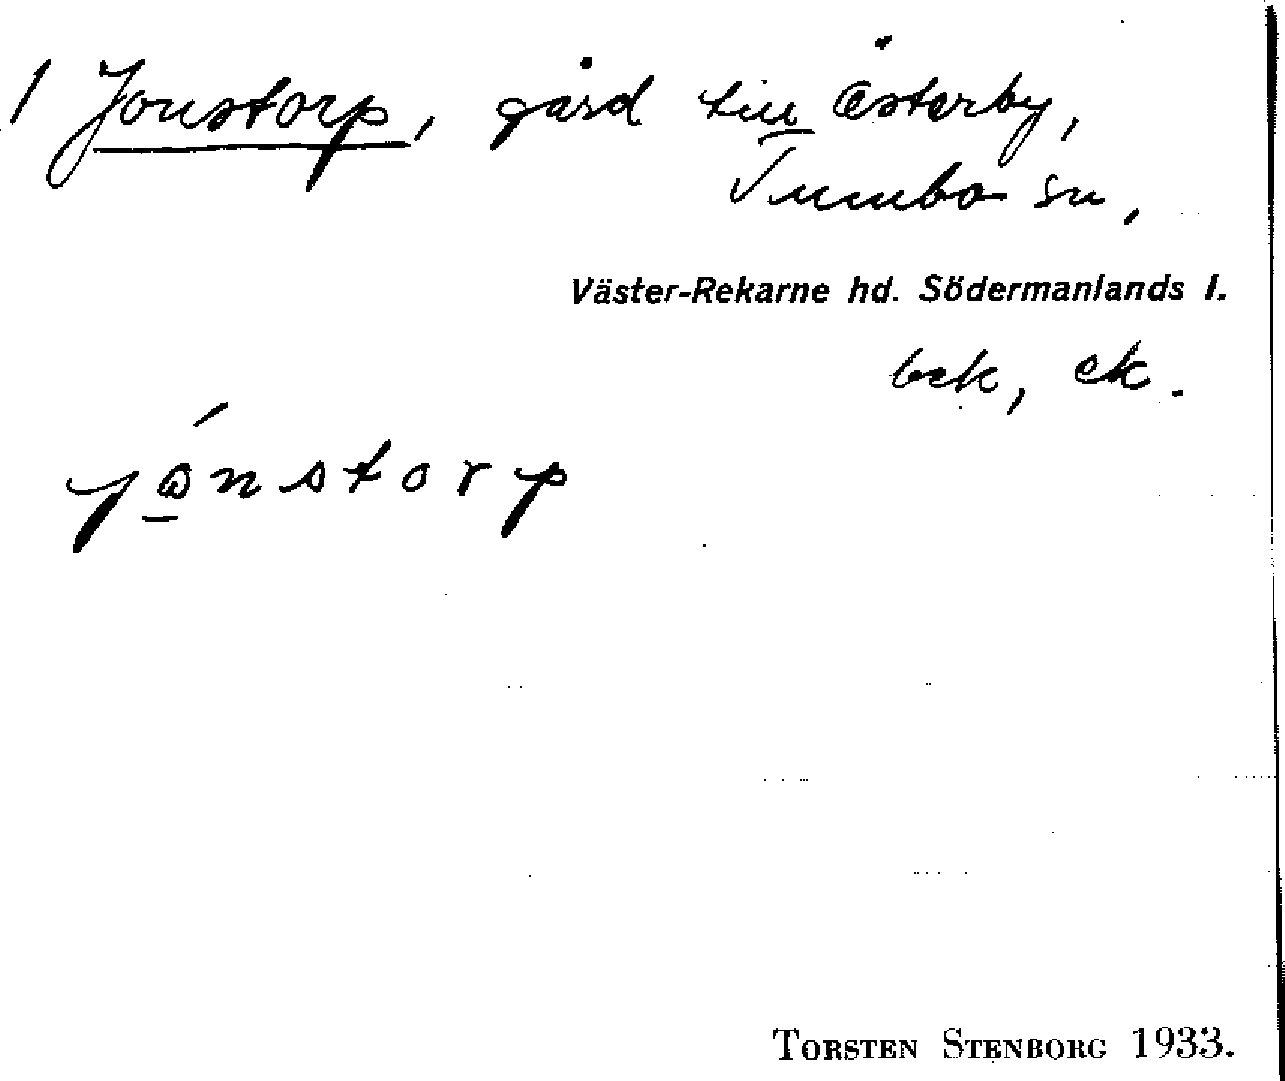 1 Jonstorp, gård till Österby,
Tumbo sn,
Väster-Rekarne hd. Södermanlands l.
bek, ek.
jɷ́nstorp
TORSTEN STENBORG 1933.